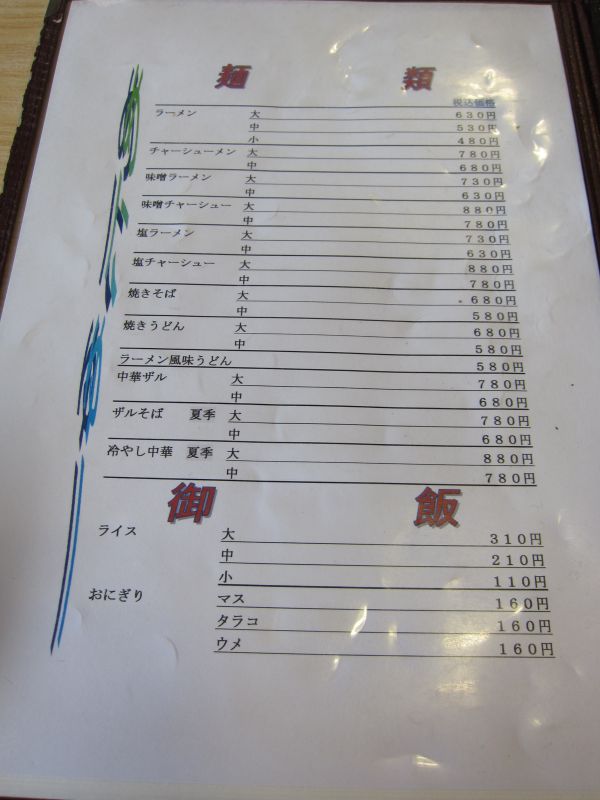 麺 類
税込価格
ラーメン 大 ６３０円
中 ５３０円
小 ４８０円
チャーシューメン 大 ７８０円
中 ６８０円
味噌ラーメン 大 ７３０円
中 ６３０円
味噌チャーシュー 大 ８８０円
中 ７８０円
塩ラーメン 大 ７３０円
中 ６３０円
塩チャーシュー 大 ８８０円
中 ７８０円
焼きそば 大 ６８０円
中 ５８０円
焼きうどん 大 ６８０円
中 ５８０円
ラーメン風味うどん ５８０円
中華ザル 大 ７８０円
中 ６８０円
ザルそば 夏季 大 ７８０円
中 ６８０円
冷やし中華 夏季 大 ８８０円
中 ７８０円
御 飯
ライス 大 ３１０円
中 ２１０円
小 １１０円
おにぎり マス １６０円
タラコ １６０円
ウメ １６０円